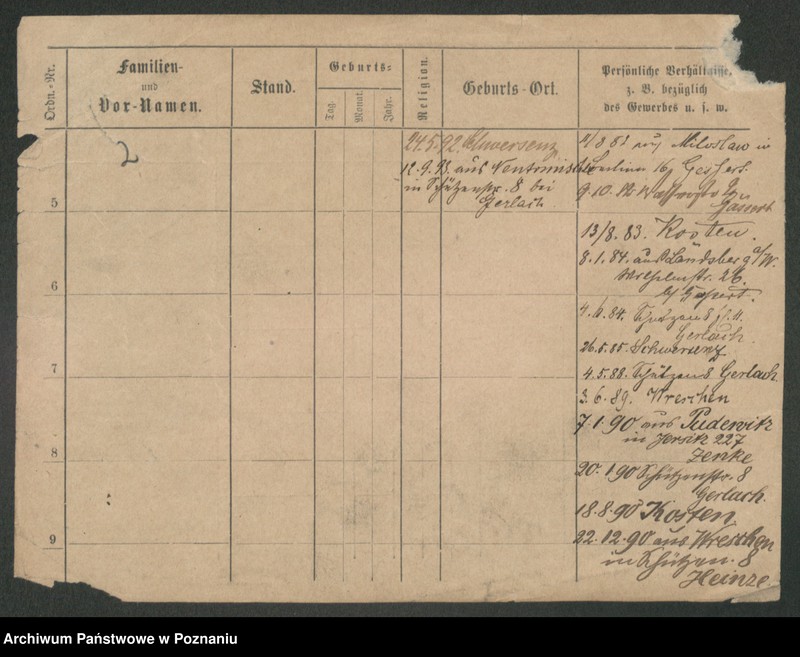 Ordn.-Nr.
Familien-
und
Vor-Namen.
Stand.
Geburts-
Tag.
Monat.
Jahr.
Religion.
Geburts-Ort.
Persönliche Verhältnisse,
z. B. bezüglich
des Gewerbes u. s. w.
2
5
6
7
8
9
24.5.92. Schwersenz
12.9.93. aus
in Schützenstr. 8 bei
Gerlach
Miloslaw in
9.10.
13/8. 83. Kosten.
8.1.84. aus Landsberg a/W.
26.
4.4.84. Schützen 8
Gerlach.
26.5.85. Schwersenz
4.5.88. Schützen 8. Gerlach.
3.6.89. Wreschen
7.1.90 aus Pudewitz
in Jersitz 227
Zenke
20.1.90 Schützenstr. 8
Gerlach.
18.8.90 Kosten.
22.12.90 aus Wreschen
in Schützen. 8
Heinze
Archiwum Państwowe w Poznaniu